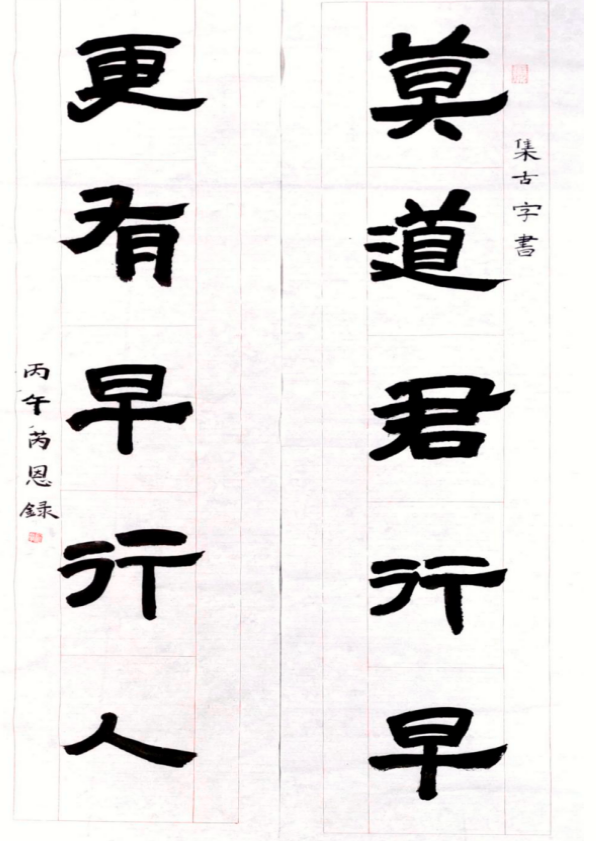 集古字書
莫道君行早
更有早行人
丙午芮恩録